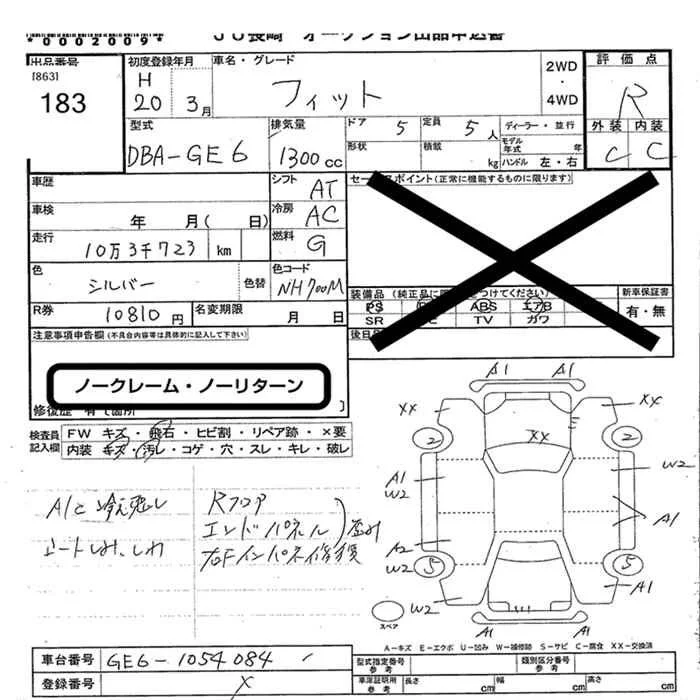 *0002009* JU長崎 オークション出品申込書
出品番号 初度登録年月 車名・グレード 2WD・4WD 評価点
[863]
183 H 20 3月 フィット R
外装 内装
C C
型式 排気量 ドア 5 定員 5人 ディーラー・並行
DBA-GE6 1300cc 形状 積載 kg モデル年式 年
ハンドル 左・右
車歴 シフト AT セールスポイント(正常に機能するものに限ります)
車検 年 月( 日) 冷房 AC
走行 10万3千723 km 燃料 G
色 シルバー 色替 色コード NH700M
装備品 (純正品に つけてください) 新車保証書
PS ABS エアB 有・無
SR TV カワ
R券 10810円 名変期限 月 日
後日
注意事項申告欄 (不具合内容等は具体的に記入して下さい)
ノークレーム・ノーリターン
修復歴 有で箇所
検査員記入欄 FW キズ・飛石・ヒビ割・リペア跡・×要
内装 キズ・汚レ・コゲ・穴・スレ・キレ・破レ
A/C冷え悪し Rフロア
エンドパネル 歪み
シートしみ、しわ 右Fインパネ修損
A1 A1
XX XX
XX
2 2
A1 W2
W2
A1
A2
W2 5 5
W2 A1
A1 A1
スペア
A-キズ E-エクボ U-凹み W-補修跡 S-サビ C-腐食 XX-交換済
車台番号 GE6-1054084
登録番号 ×
型式指定番号 参考 類別区分番号 参考
車庫証明用 参考 長さ cm 幅 cm 高さ cm